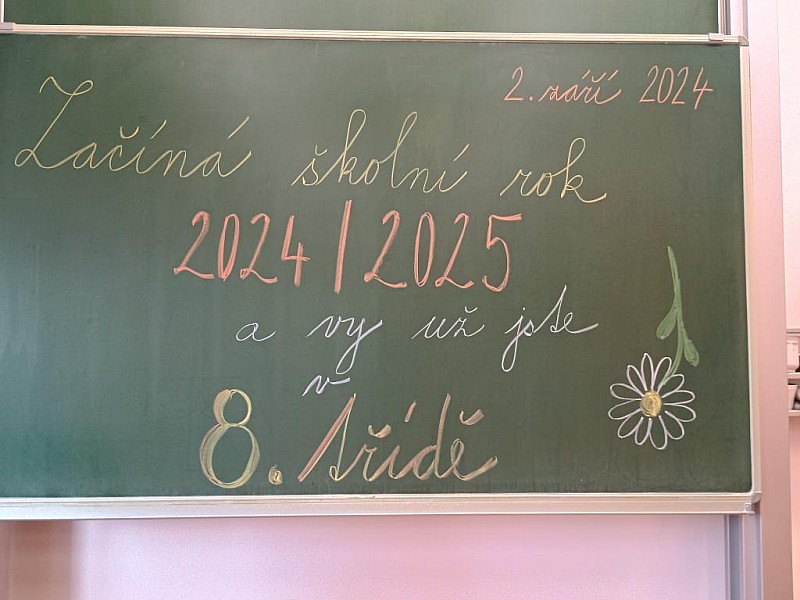 2. září 2024
Začíná školní rok
2024/2025
a vy už jste
v
8. třídě